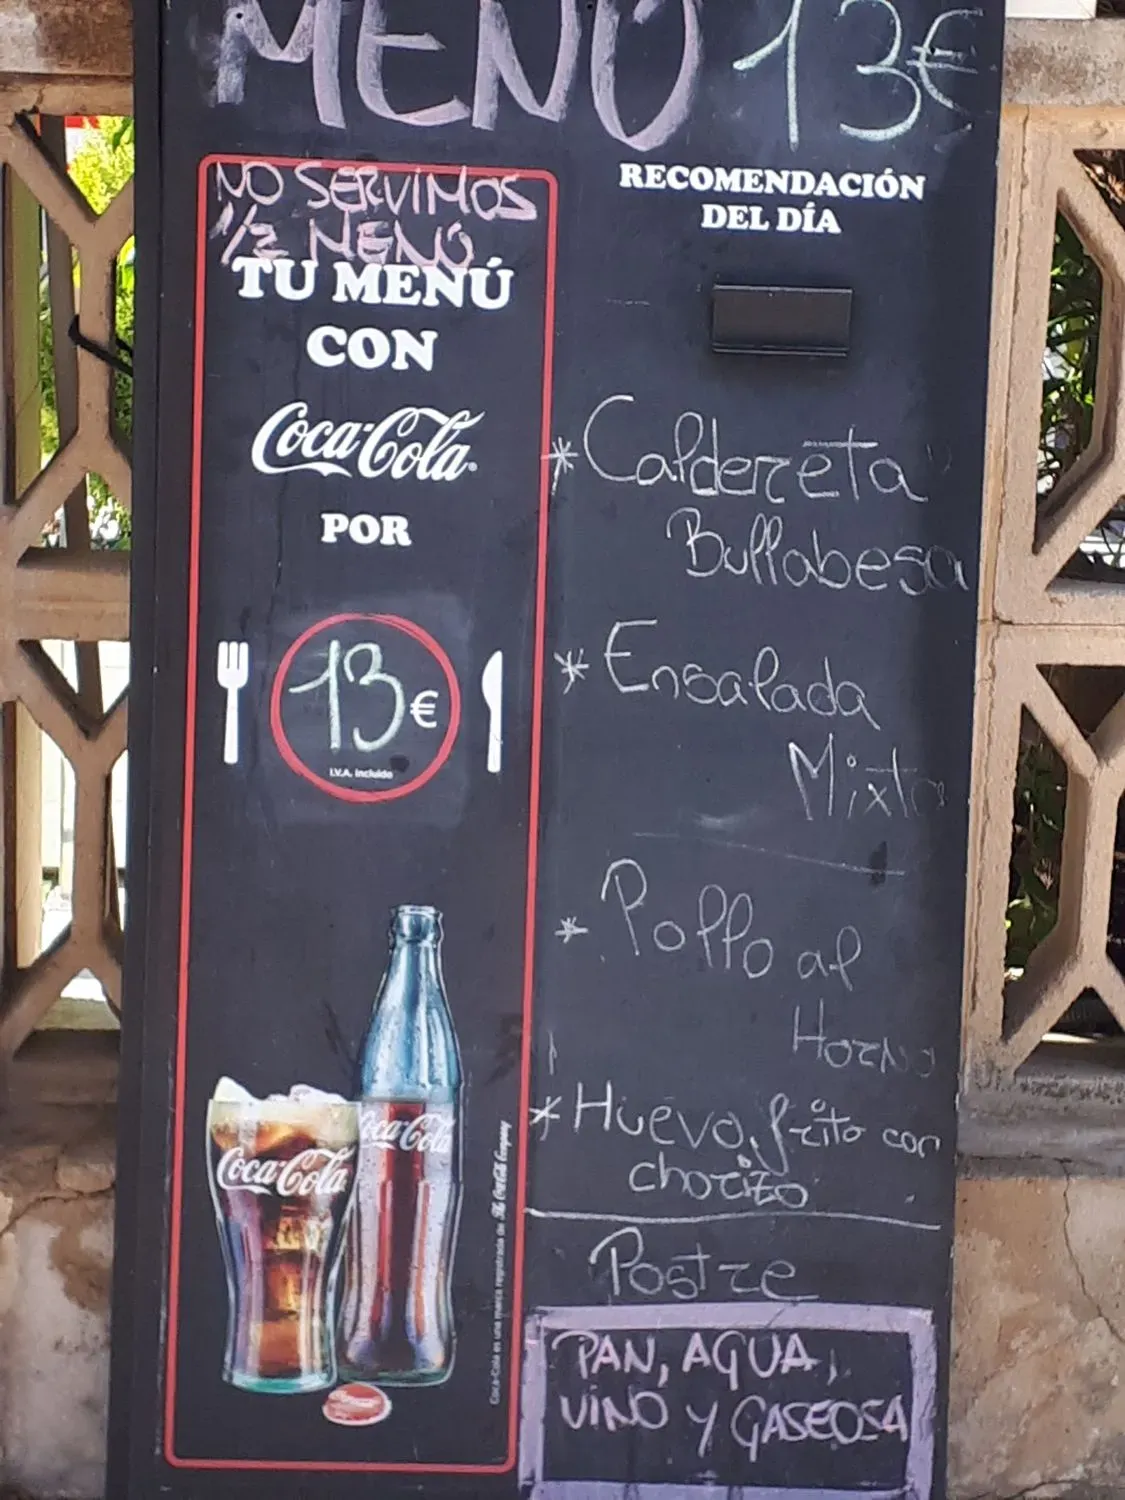 MENÚ 13€
NO SERVIMOS
1/2 MENÚ
TU MENÚ
CON
Coca-Cola
POR
13€
I.V.A. incluido
Coca-Cola
Coca-Cola
Coca-Cola es una marca registrada de The Coca-Cola Company
RECOMENDACIÓN
DEL DÍA
* Caldereta
Bullabesa
* Ensalada
Mixta
* Pollo al
Horno
* Huevo frito con
chorizo
Postre
PAN, AGUA,
VINO Y GASEOSA